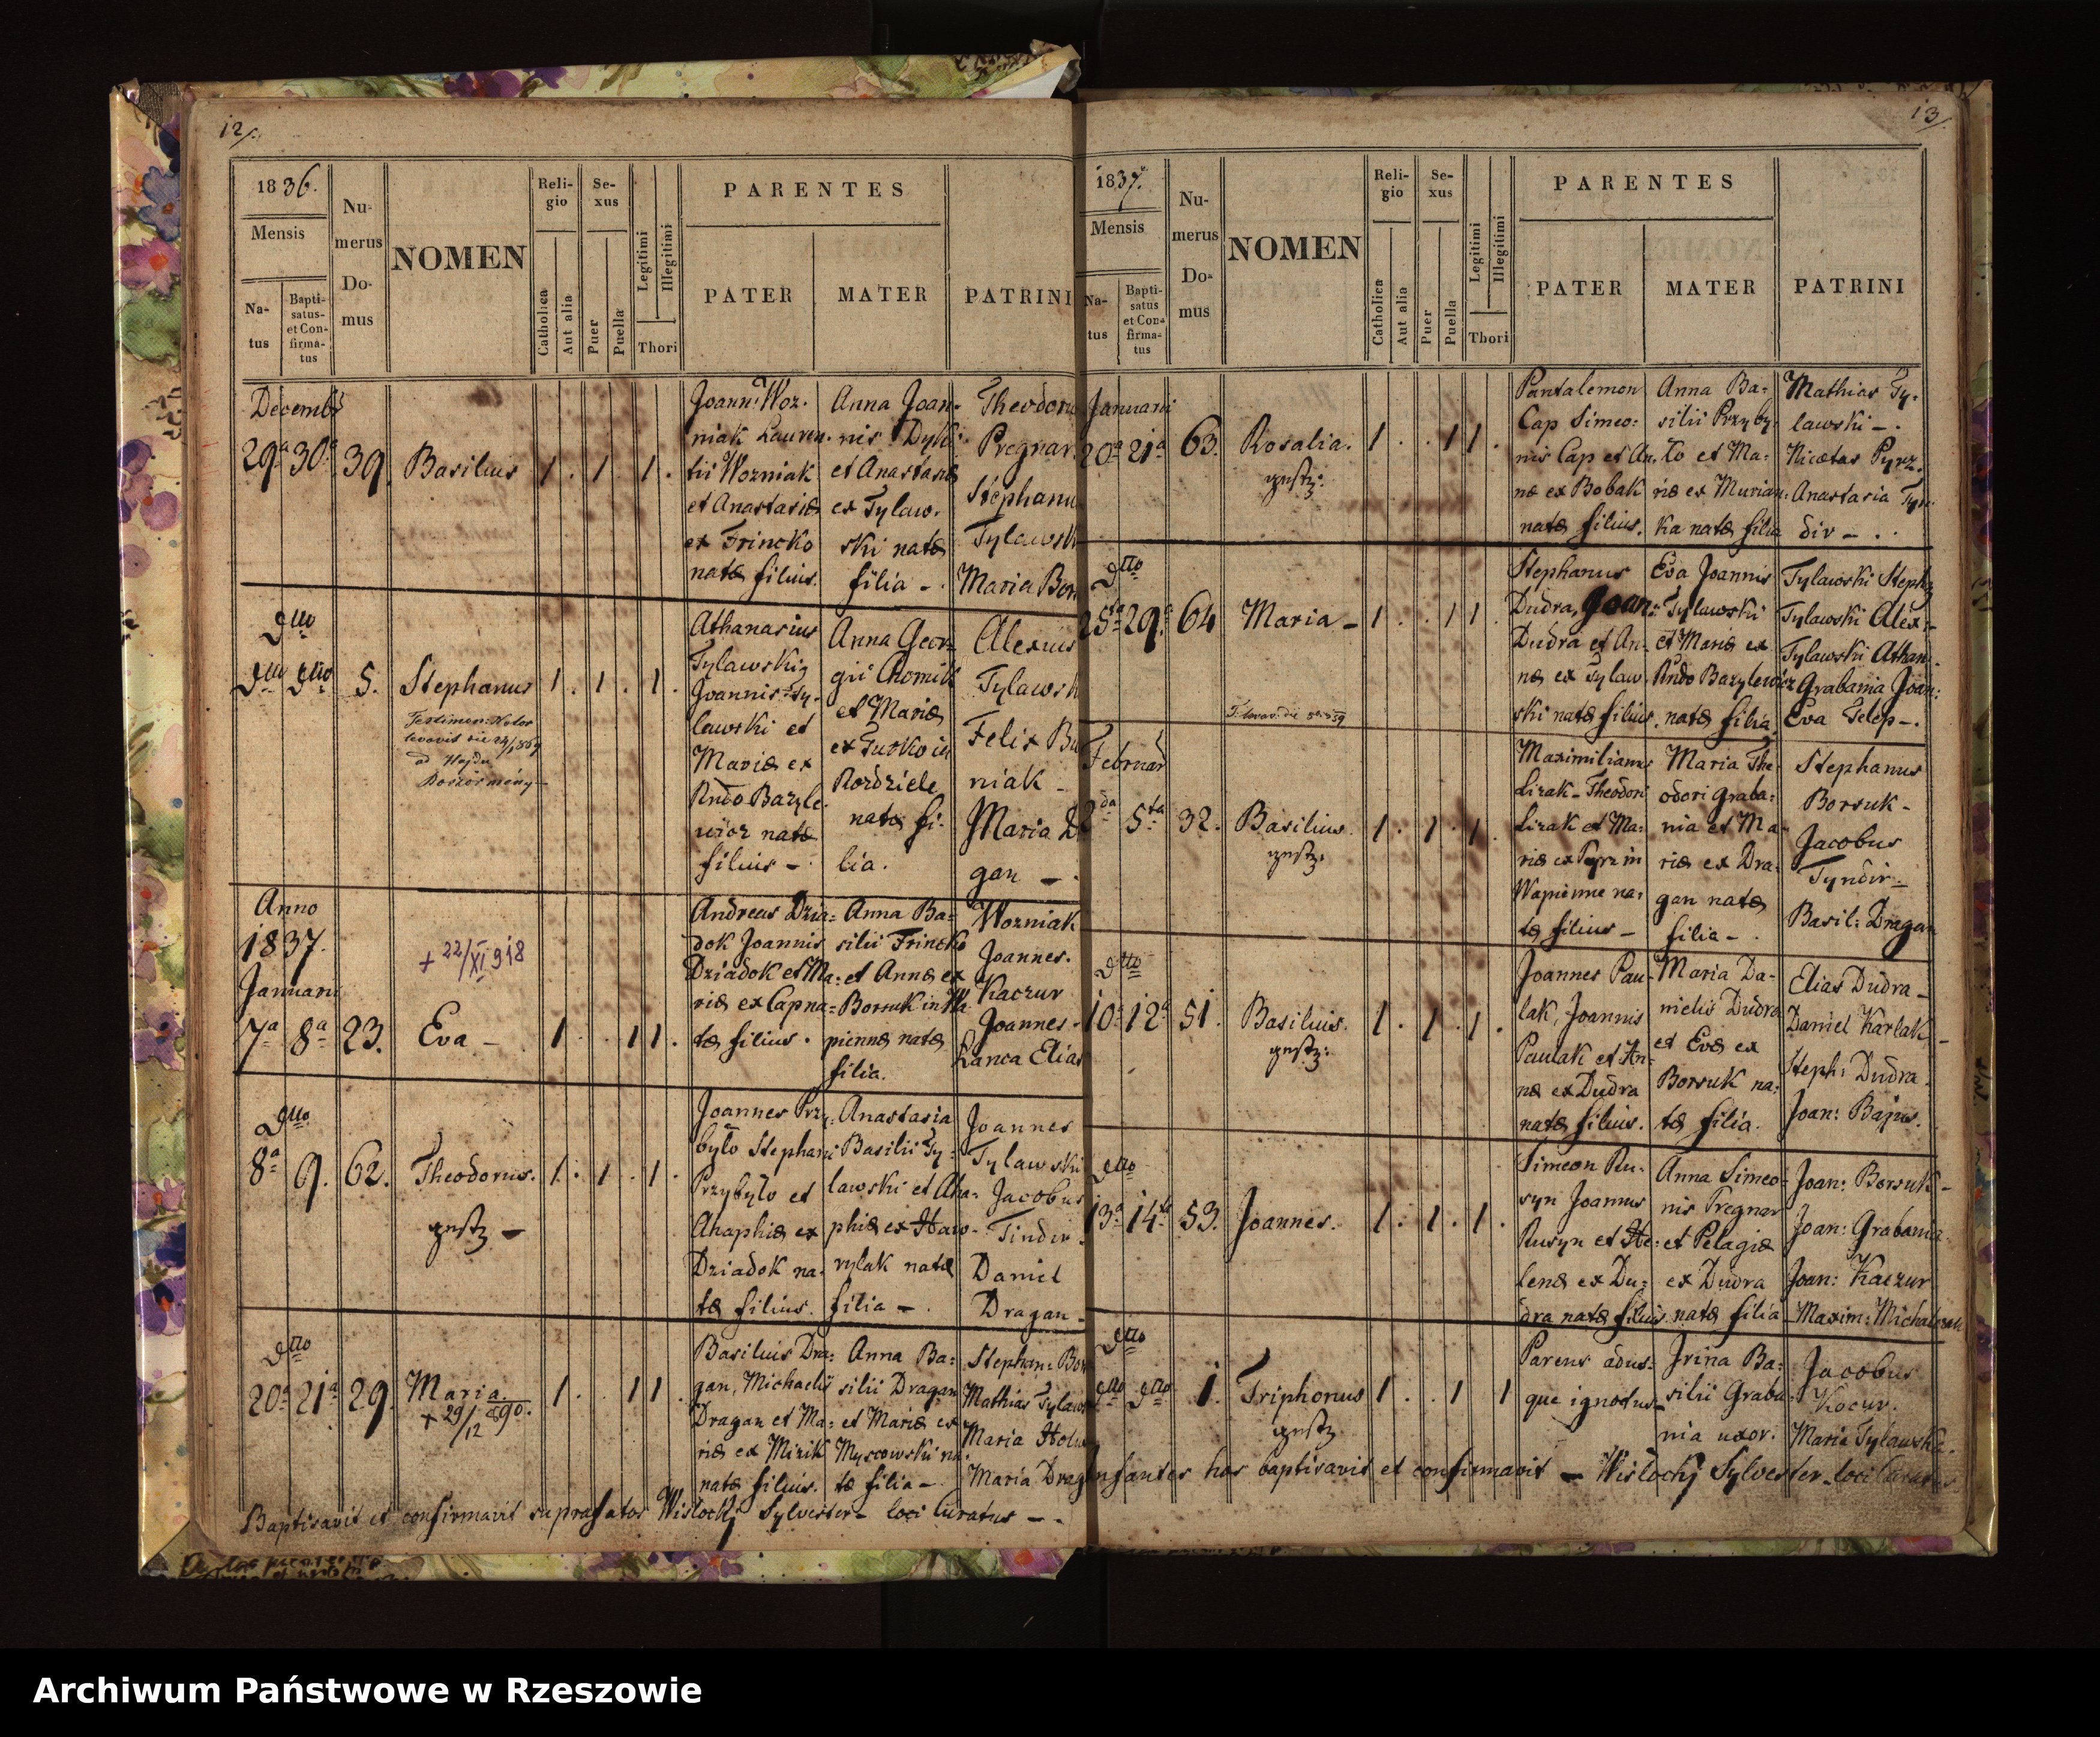 12/.
1836.
Mensis
Na-
tus
Bapti-
satus-
et Con-
firma-
tus
Nu-
merus
Do-
mus
NOMEN
Reli-
gio
Catholica
Aut alia
Se-
xus
Puer
Puella
Legitimi
Illegitimi
Thori
PARENTES
PATER
MATER
PATRINI
Decembr
29a 30a 39. Basilius 1 . 1 . 1 .
Joann: Woz-
niak Lauren-
tii Wozniak
et Anastasiæ
ex Frincko
natæ filius.
Anna Joan-
nis Dyk:
et Anastasiæ
ex Tylaw-
ski natæ
filia -
Theodoru
Pregnar
Stephanu
Tylawsk
Maria Bor
Dtto
Dtto Dtto 5. Stephanus 1 . 1 . 1 .
Athanasius
Tylawskij
Joannis Ty-
lawski et
Mariæ ex
Rndo Bazyle-
wicz natæ
filius -
Anna Geor-
gii Chomik
et Mariæ
ex Fuzko in
Rozdziele
natæ fi-
lia.
Alexius
Tylawsk
Felix Bu
niak -
Maria D
gan -
Anno
1837.
Januarii
7a 8a 23. Eva - 1 . . 1 1 .
+ 22/XI 918
Andreas Dzia-
dok Joannis
Dziadok et Ma-
riæ ex Cap na-
tæ filius.
Anna Ba-
silii Frincko
et Annæ ex
Borsuk in Wa
piennæ natæ
filia.
Wozniak
Joannes.
Kaczur
Joannes -
Lanca Elias
Dtto
8a 9. 62. Theodorus. 1 . 1 . 1 .
Joannes Prz-
było Stephani
Przybyło et
Ahaphiæ ex
Dziadok na-
tæ filius.
Anastasia
Basilii Ty-
lawski et Aha-
phiæ ex Haw-
rylak natæ
filia -
Joannes
Tylawski
Jacobus
Tindir
Daniel
Dragan -
Dtto
20a 21a 29. Maria. 1 . . 1 1 .
+ 29/12 890.
Basilius Dra-
gan, Michaelis
Dragan et Ma-
riæ ex Mizik
natæ filius.
Anna Ba-
silii Dragan
et Mariæ ex
Myscowski na-
tæ filia -
Stephan: Bor
Mathias Tylaw
Maria
Maria Drag
Baptisavit et confirmavit suprafatos Wislockj Sylvester - loci Curatus -
13/.
1837.
Mensis
Na-
tus
Bapti-
satus
et Con-
firma-
tus
Nu-
merus
Do-
mus
NOMEN
Reli-
gio
Catholica
Aut alia
Se-
xus
Puer
Puella
Legitimi
Illegitimi
Thori
PARENTES
PATER
MATER
PATRINI
Januarii
20a 21a 63. Rosalia. 1 . . 1 1 .
Pantalemon
Cap Simeo-
nis Cap et An-
næ ex Bobak
natæ filius.
Anna Ba-
silii Przyby-
ło et Ma-
riæ ex Murian-
ka natæ filia
Mathias Ty-
lawski -
Nicetas Pyrz.
Anastasia Tyn-
dir -
Dtto
25ta 29a 64 Maria - 1 . . 1 1 .
Stephanus
Dudra, Joan:
Dudra et An-
næ ex Tylaw-
ski natæ filius.
Eva Joannis
Tylawski
et Mariæ ex
Rndo Bazylewicz
natæ filia
Tylawski Steph
Tylawski Alex:
Tylawski Athan.
Grabania Joan:
Eva Telep -
Februar
2da 5ta 32. Basilius. 1 . 1 . 1 .
Maximilianus
Lizak - Theodori
Lizak et Ma-
riæ ex Pyrz in
Wapienne na-
tæ filius -
Maria The-
odori Graba-
nia et Ma-
riæ ex Dra-
gan natæ
filia -
Stephanus
Borsuk -
Jacobus
Tyndir -
Basil: Dragan
Dtto
10a 12a 51. Basilius. 1 . 1 . 1 .
Joannes Pau-
lak, Joannis
Paulak et An-
næ ex Dudra
natæ filius.
Maria Da-
nielis Dudra
et Evæ ex
Borsuk na-
tæ filia.
Elias Dudra -
Daniel Karlak -
Steph: Dudra.
Joan: Bajus.
Dtto
13a 14ta 53. Joannes. 1 . 1 . 1 .
Simeon Ru-
syn Joannis
Rusyn et He-
lenæ ex Du-
dra natæ filius
Anna Simeo-
nis Pregnar
et Pelagiæ
ex Dudra
natæ filia
Joan: Borsuk -
Joan: Grabania
Joan: Kaczur
Maxim: Michalczak
Dtto
Dtto Dtto 1. Triphonus 1 . . 1 1
Parens adus-
que ignotus -
Irina Ba-
silii Graba-
nia uxor.
Jacobus
Kocur.
Maria Tylawska.
Infantes hos baptisavit et confirmavit - Wislockj Sylvester - loci Curatus
Archiwum Państwowe w Rzeszowie